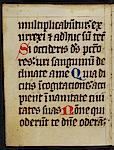 multiplicabūtur ex
urrexi ⁊ adhuc sū tecū
Si occideris ds pecca
tores: uiri sanguinū de
clinate a me Quia di
citis ī cogitatione: acci
pient ī uanitate ciui
tates suas Nōne qui
oderūt te dñe oderā: